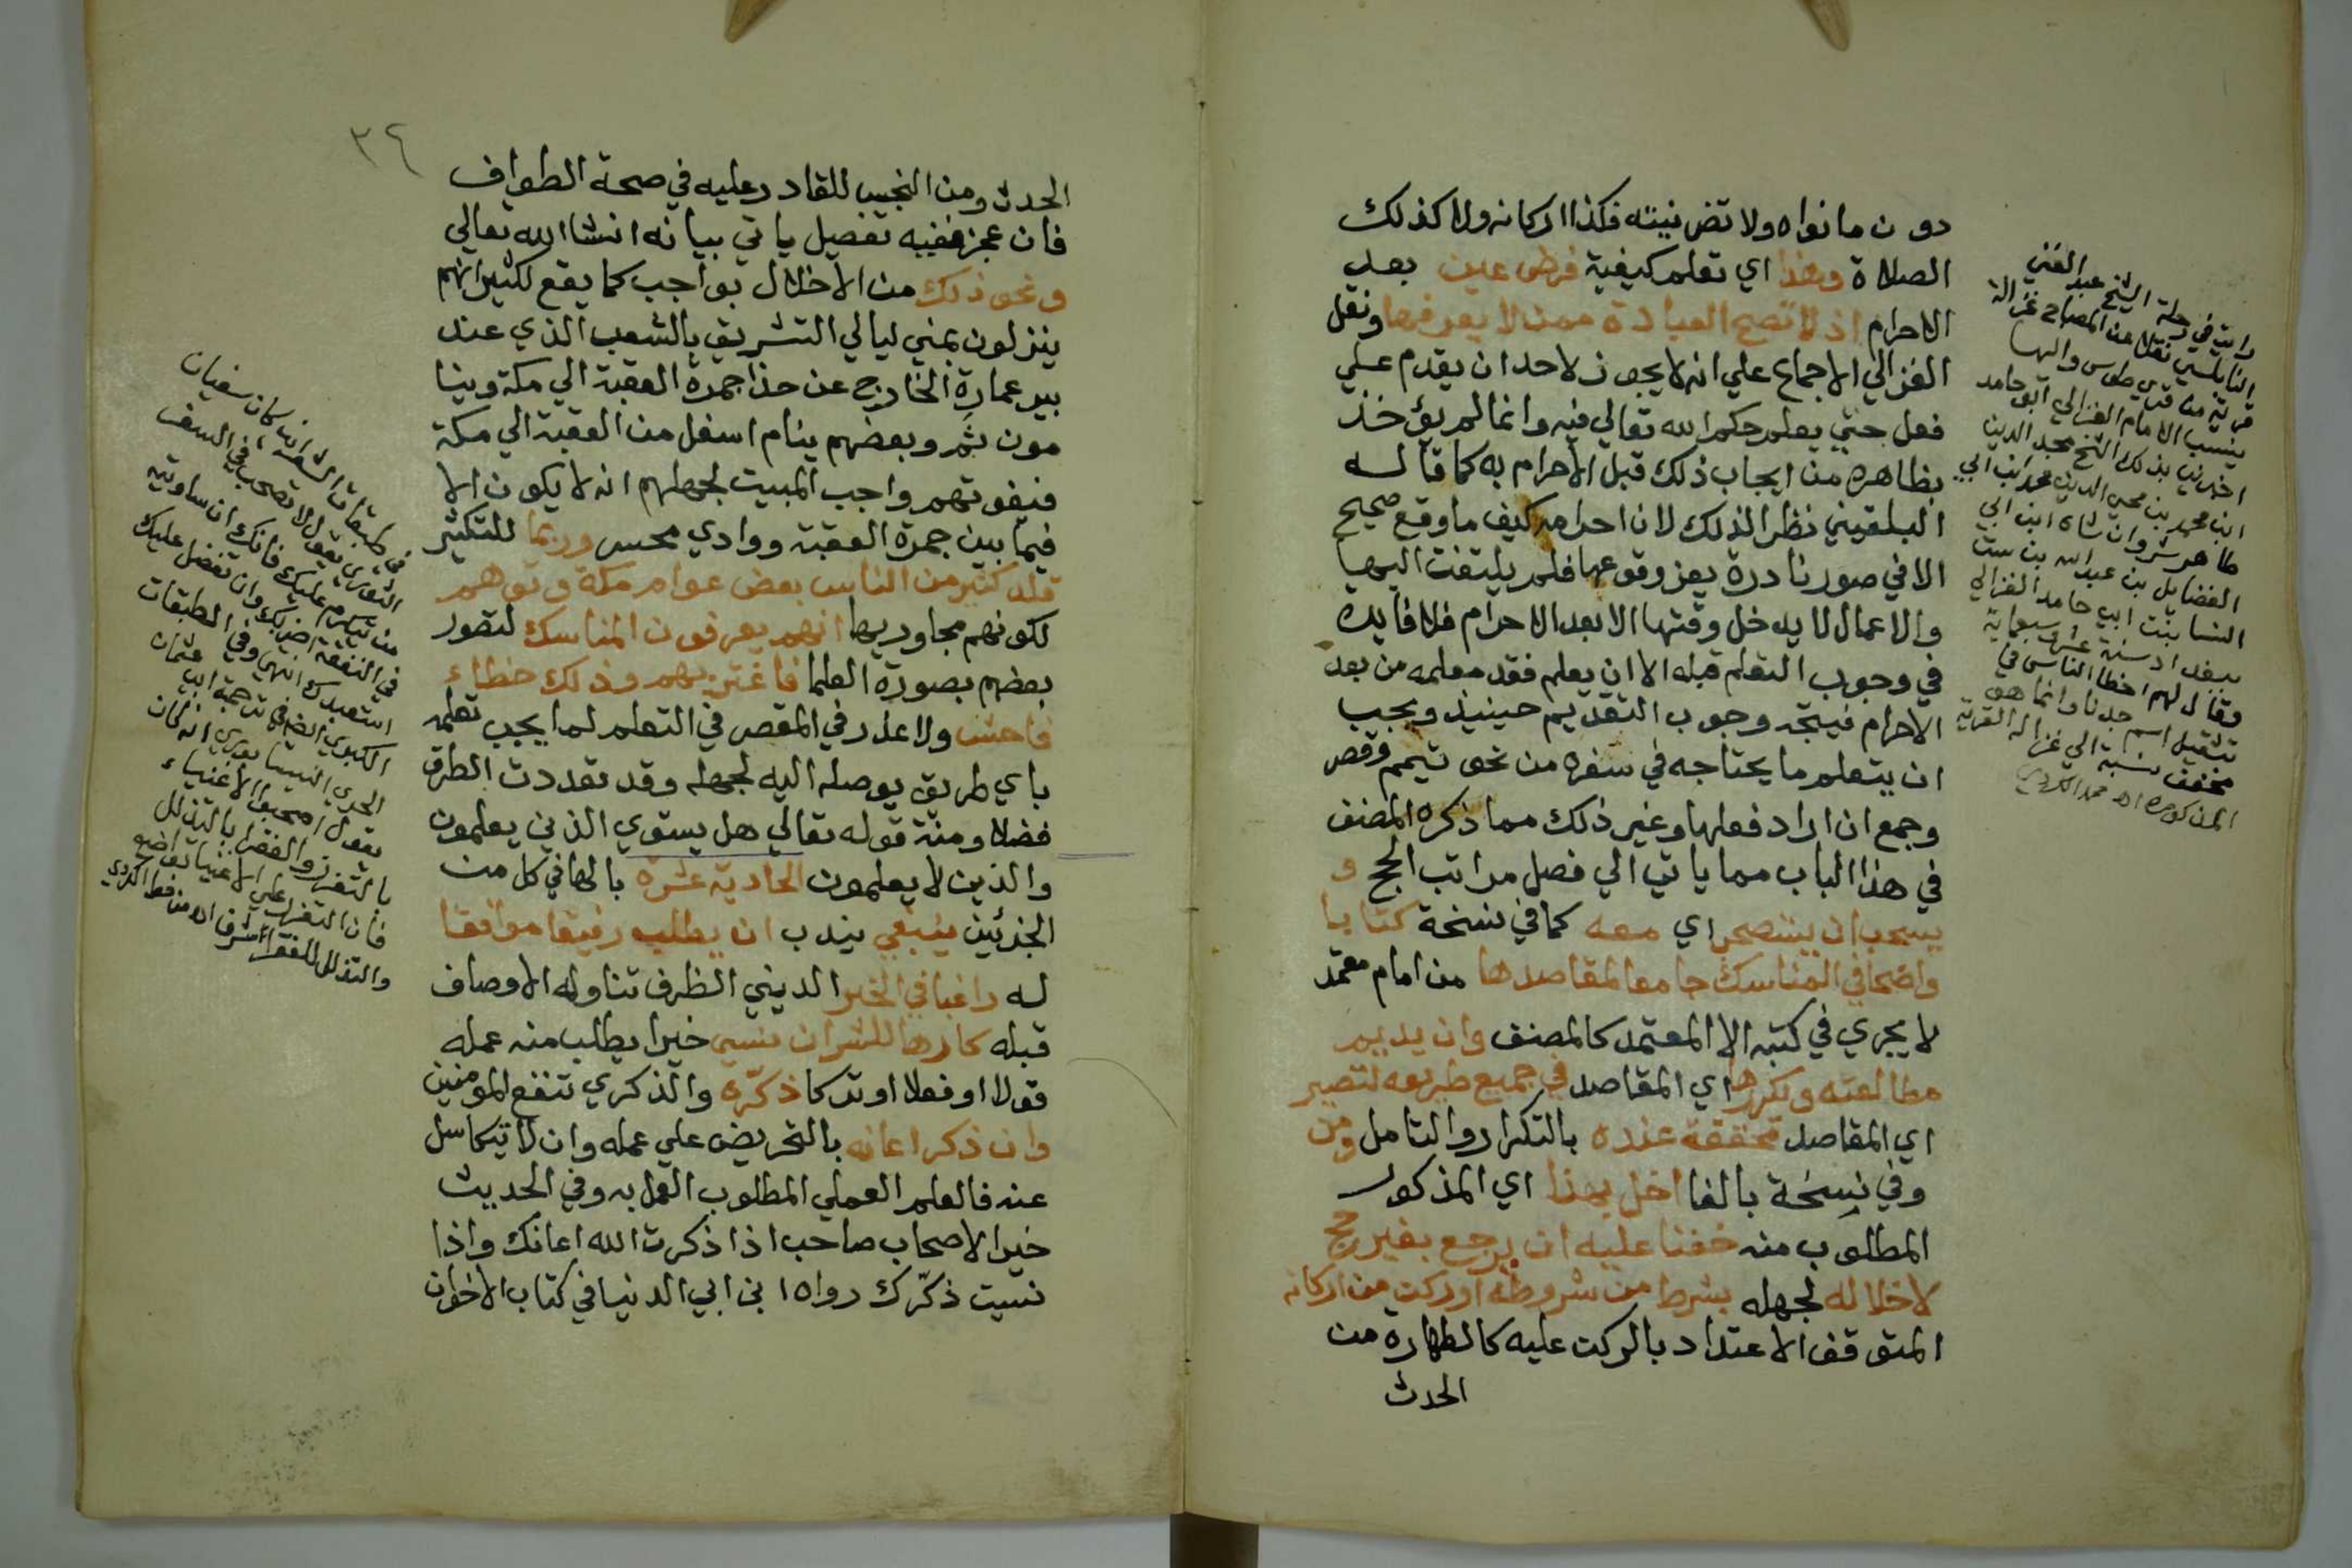 دون ما نواه ولا تضر نيته فكذا اركانه ولا كذلك
الصلاة وهذا اي تعلم كيفية فرض عين بعد
الاحرام اذ لا تصح العبادة ممن لا يعرفها ونقل
الغزالي الاجماع علي انه لا يجوز لاحد ان يقدم علي
فعل حتي يعلم حكم الله تعالي فيه وانما لم يؤخذ
بظاهره من ايجاب ذلك قبل الاحرام به كما قاله
البلقيني نظرا لذلك لان احرامه كيف ما وقع صحيح
الا في صور نادرة يعز وقوعها فلم يلتفت اليها
والاعمال لا يدخل وقتها الا بعد الاحرام فلا فايدة
في وجوب التعلم قبله الا ان يعلم فقد معلمه من بعد
الاحرام فيتجه وجوب التقديم حينيذ ويجب
ان يتعلم ما يحتاجه في سفره من نحو تيمم وقصر
وجمع ان اراد فعلها وغير ذلك مما ذكره المصنف
في هذا الباب مما ياتي الي فصل مراتب الحج و
يستحب ان يستصحب اي معه كما في نسخة كتابا
واضحا في المناسك جامعا لمقاصدها من امام معتمد
لا يجري في كتبه الا المعتمد كالمصنف وان يديم
مطالعته ويكررها اي المقاصد في جميع طريقه لتصير
اي المقاصد محققة عنده بالتكرار والتامل ومن
وفي نسخة بالفا اخل بهذا اي المذكور
المطلوب منه خفنا عليه ان يرجع بغير حج
لاخلاله لجهله بشرط من شروطه او ركن من اركانه
المتوقف الاعتداد بالركن عليه كالطهارة من
الحدث
رايت في رحلة الشيخ عبد الغني
النابلسي نقلا عن المصباح غزالة
قرية من قري طوس واليها
ينسب الامام الغزالي ابو حامد
اخبرني بذلك الشيخ مجد الدين
ابن محمد بن محي الدين محمد ابن ابي
طاهر شروان شاه ابن ابي
الفضايل بن عبد الله بن ست
النسا بنت ابي حامد الغزالي
ببغداد سنة عشر وسبعماية
وقال لهم اخطا الناس في
تثقيل اسم جدنا وانما هو
مخفف نسبة الي غزالة القرية
المذكورة اه محمد الكردي
٣٤
الحدث ومن الخبيث للقادر عليه في صحة الطواف
فان عجز ففيه تفصيل ياتي بيانه انشا الله تعالي
ونحو ذلك من الاخلال بواجب كما يقع لكثير انهم
ينزلون بمني ليالي التشريق بالشعب الذي عند
بير عمارة الخارج عن حذا جمرة العقبة الي مكة وينا
مون ثم وبعضهم ينام اسفل من العقبة الي مكة
فيفوتهم واجب المبيت لجهلهم انه لا يكون الا
فيما بين جمرة العقبة ووادي محسر وربما للتكثير
قلد كثير من الناس بعض عوام مكة وتوهم
لكونهم مجاوريها انهم يعرفون المناسك لتصور
بعضهم بصورة العلما فاغتر بهم وذلك خطاء
فاحش ولا عذر في المقصر في التعلم لما يجب تعلمه
باي طريق يوصله اليه لجهله وقد تعددت الطرق
فضلا ومنة قوله تعالي هل يستوي الذين يعلمون
والذين لا يعلمون الحادية عشرة بالها في كل من
الجزئين ينبغي يندب ان يطلب رفيقا موافقا
له راغبا في الخير الديني الظرف تناوله الاوصاف
قبله كارها للشر ان نسي خيرا يطلب منه عمله
قولا او فعلا او تركا ذكّره والذكري تنفع المومنين
وان ذكر اعانه بالتحريض علي عمله وان لا يتكاسل
عنه فالعلم العملي المطلوب العمل به وفي الحديث
خير الاصحاب صاحب اذا ذكرت الله اعانك واذا
نسيت ذكّرك رواه ابن ابي الدنيا في كتاب الاخوان
في طبقات الشعراني كان سفيان
الثوري يقول لا تصحب في السفر
من يتكرم عليك فانك ان ساويته
في النفقة اضر بك وان تفضل عليك
استعبدك انتهي وفي الطبقات
الكبري ايضا في ترجمة ابي عثمان
الحيري النيسابوري انه كان
يقول اصحبوا الاغنياء
بالتعزز والفقرا بالتذلل
فان التعزز علي الاغنيا تواضع
والتذلل للفقرا شرف اه